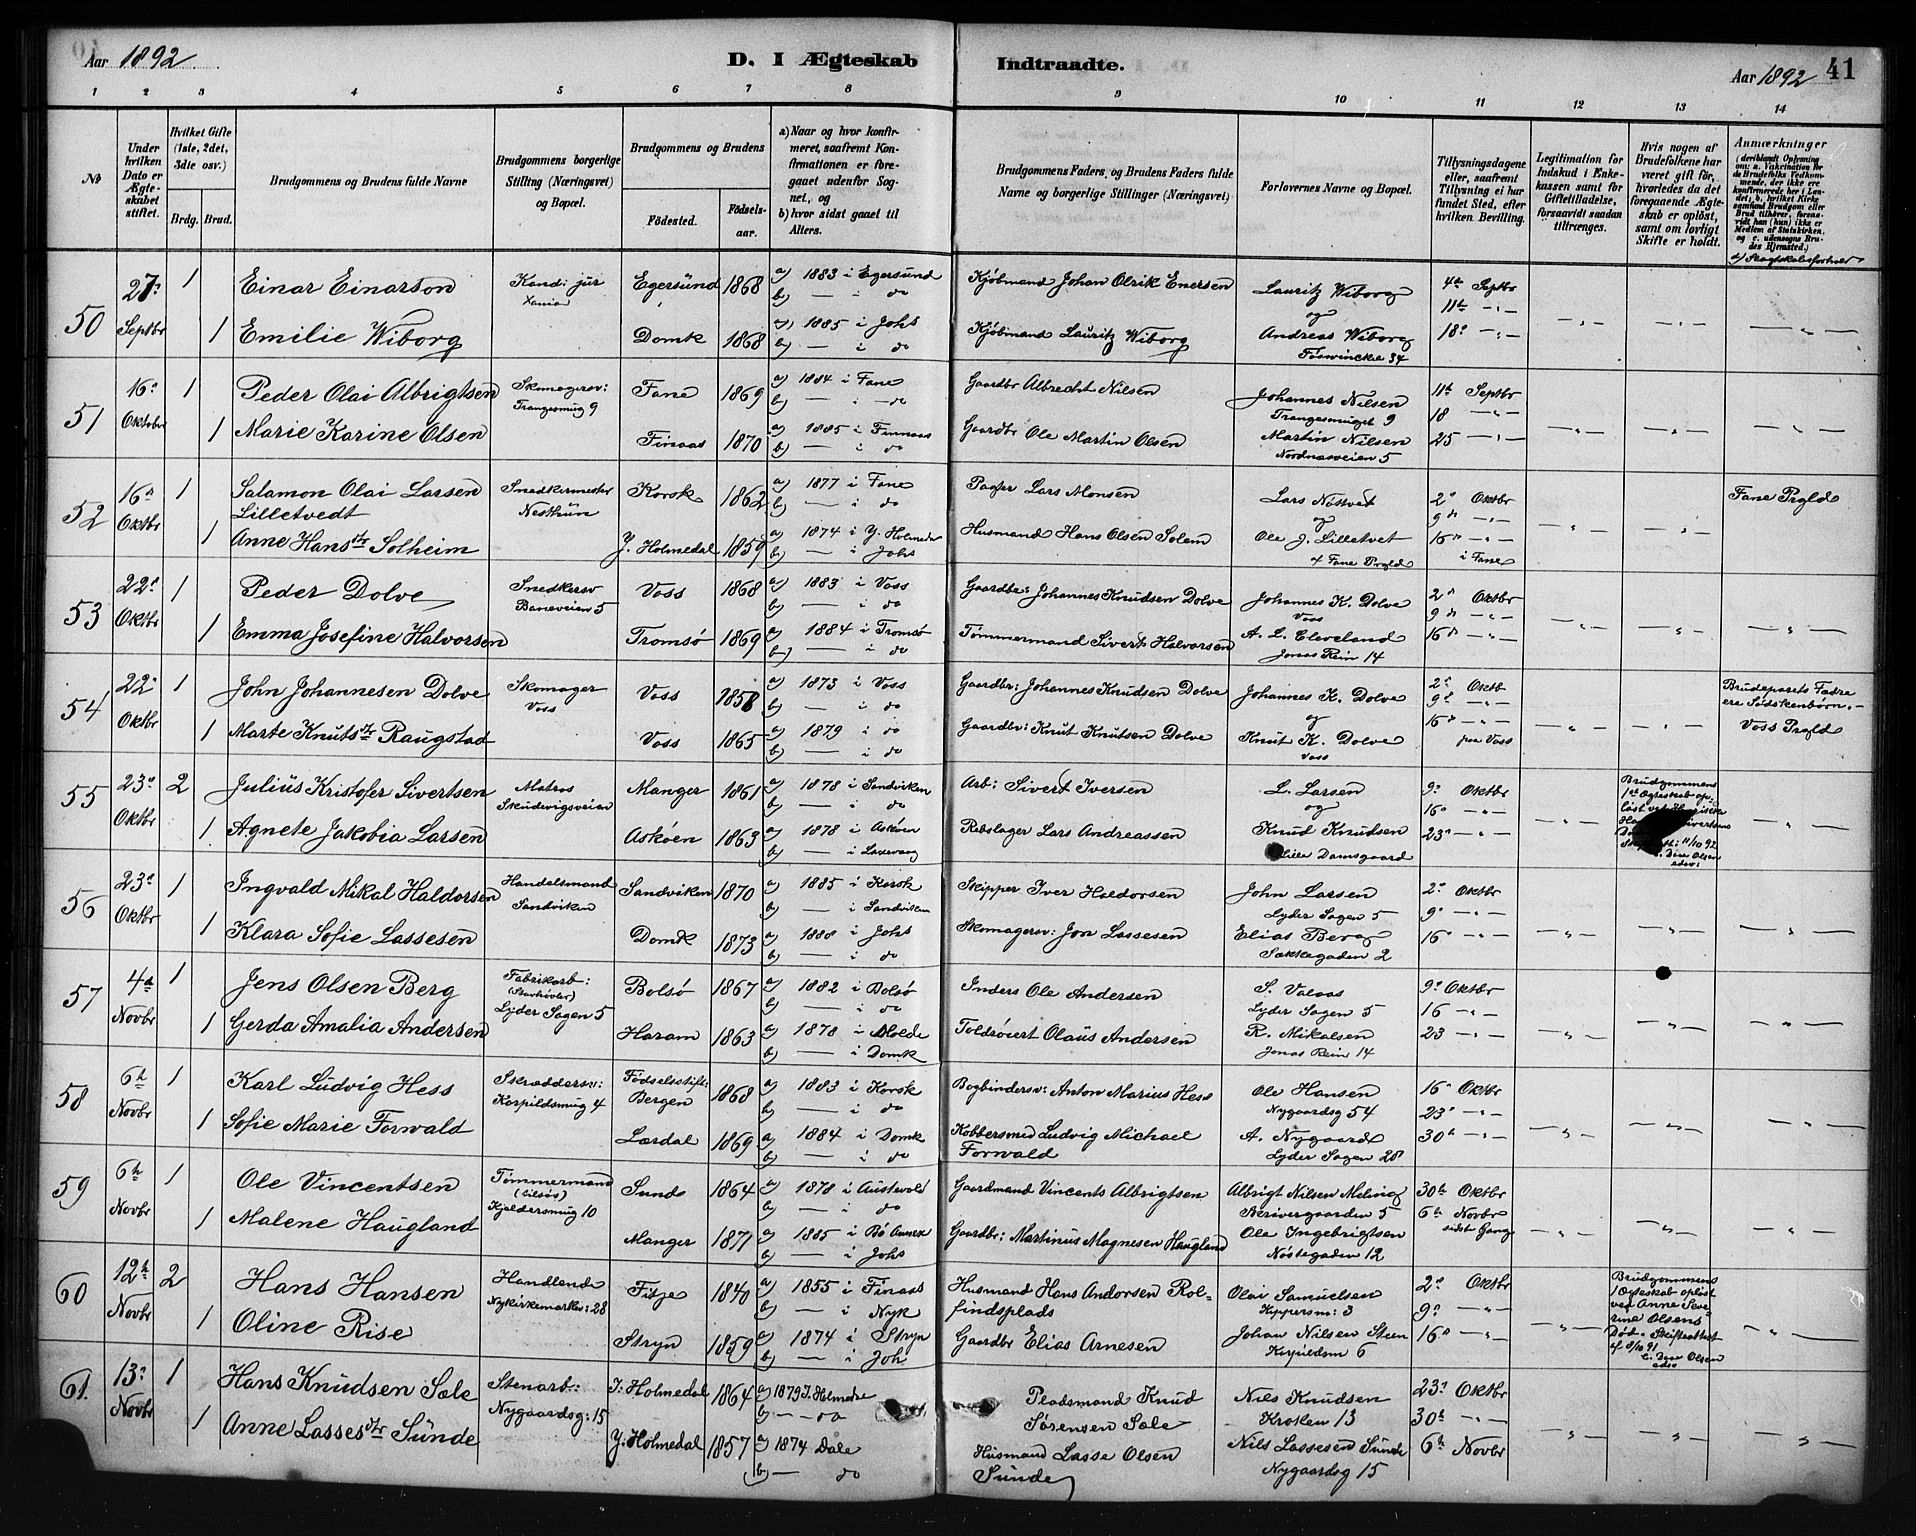 Aar 1892
D. I Ægteskab
Indtraadte.
Aar 1892 41
1 2 3 4 5 6 7 8 9 10 11 12 13 14
No
Under hvilken Dato er Ægteskabet stiftet.
Hvilket Gifte (1ste, 2det, 3die osv.)
Brdg. Brud.
Brudgommens og Brudens fulde Navne
Brudgommens borgerlige Stilling (Næringsvei) og Bopæl.
Brudgommens og Brudens
Fødested.
Fødselsaar.
a) Naar og hvor konfirmeret, saafremt Konfirmationen er foregaaet udenfor Sognet, og
b) hvor sidst gaaet til Alters.
Brudgommens Faders, og Brudens Faders fulde Navne og borgerlige Stillinger (Næringsvei)
Forlovernes Navne og Bopæl.
Tillysningsdagene eller, saafremt Tillysning ei har fundet Sted, efter hvilken Bevilling.
Legitimation for Indskud i Enkekassen samt for Giftetilladelse, forsaavidt saadan tiltrænges.
Hvis nogen af Brudefolkene har været gift før, hvorledes da det foregaaende Ægteskab er opløst, samt om lovligt Skifte er holdt.
Anmærkninger
50 27de Septbr 1 Einar Einarson Kand: jur Xania Egersund 1868 a) 1883 i Egersund b) — i do Kjøbmand Johan Olrik Enersen Lauritz Wiborg og 4de Septbr 11te — " —
1 Emilie Wiborg Domk 1868 a) 1885 i Johs b) — i do Kjøbmand Lauritz Wiborg Andreas Wiborg 34 18de — " —
51 16de Oktober 1 Peder Olai Albrigtsen Skomagersv: Trangesmug 9 Fane 1869 a) 1884 i Fane b) — i do Gaardbr Albrecht Nilsen Johannes Nilsen Trangesmuget 9 11te Septbr 18 — " —
1 Marie Karine Olsen Finaas 1870 a) 1885 i Finnaas b) — i do Gaardbr Ole Martin Olsen Martin Nilsen Nordnæsveien 5 25 — " —
52 16de Oktbr 1 Salamon Olai Larsen Lilletvedt Snedkermester Nesthun Korsk 1862 a) 1877 i Fane b) — i do Lars Monsen Lars Nøttvet og 2den Oktbr 9de — " — Fane Prgld
1 Anne Hansdtr Solheim Y. Holmedal 1859 a) 1874 i Y. Holmedal b) — i Johs Husmand Hans Olsen Solem Ole J. Lilletvet af Fane Prgld 16de — " — i Fane
53 22de Oktbr 1 Peder Dolve Snedkersv Baneveien 5 Voss 1868 a) 1883 i Voss b) — i do Gaardbr: Johannes Knudsen Dolve Johannes K. Dolve Voss 2den Oktbr 9de — " —
1 Emma Josefine Halvorsen Tromsø 1869 a) 1884 i Tromsø b) — i do Tømmermand Sivert Halvorsen A. L. Cleveland Jonas Rein 14 16de — " —
54 22de Oktbr 1 John Johannesen Dolve Skomager Voss Voss 1858 a) 1873 i Voss b) — i do Gaardbr: Johannes Knudsen Dolve Johannes K. Dolve og 2den Oktb 9de — " — Brudeparets Fædre ere Sødskenbørn.
1 Marte Knutsdtr Raugstad Voss 1865 a) 1879 i do b) — i do Gaardbr: Knut Knutsen Dolve Knut K. Dolve Voss 16de — " — paa Voss Voss Prgld
55 23de Oktbr 2 Julius Kristofer Sivertsen Matros Skudevigsveien Manger 1861 a) 1878 i Sandviken b) — i do Arb: Sivert Iversen L. Larsen og 9de Oktbr 16de — " — Brudgommens 1ste Ægteskab 11/10 92
1 Agnete Jakobia Larsen Askøen 1863 a) 1878 i Askøen b) — i Laxevaag Rebslager Lars Andreassen Knud Knudsen Lille Damsgaard 23de — " —
56 23de Oktbr 1 Ingvald Mikal Haldorsen Handelsmand Sandviken Sandviken 1870 a) 1885 i Korsk b) — i Sandviken Skipper Iver Haldorsen John Larsen Lyder Sagen 5 2den Oktbr 9de — " —
1 Klara Sofie Lassesen Domk 1873 a) 1888 i Johs b) — i do Skomagersv: Jon Lassesen Elias Berg Sækkegaden 2 16de — " —
57 4de Novbr 1 Jens Olsen Berg Fabrikarb: Lyder Sagen 5 Bolsø 1867 a) 1882 i Bolsø b) — i do Inders Ole Andersen S. Valaas Lyder Sagen 5 9de Oktbr 16 — " —
1 Gerda Amalia Andersen Haram 1863 a) 1878 i Molde b) — i Domk Toldroiert Olaus Andersen R. Mikalsen Jonas Rein 14 23 — " —
58 6te Novbr 1 Karl Ludvig Hess Skræddersv: Korpildsmug 4 Fødselsstift: Bergen 1868 a) 1883 i Korsk b) — i do Bogbindersv: Anton Marius Hess Ole Hansen Nygaardsg 54 16de Oktbr 23de — " —
1 Sofie Marie Forwald Lærdal 1869 a) 1884 i Domk b) — i do Kobbersmed Ludvig Michael Forwald A. Nygaard Lyder Sagen 28 30te — " —
59 6te Novbr 1 Ole Vincentsen Tømmermand Kjeldersmug 10 Sund 1864 a) 1878 i Austevold b) — i do Gaardmand Vincents Albrigtsen Albrigt Nilsen Meling 5 30te Oktbr 6te Novbr
1 Malene Haugland Manger 1871 a) 1885 i Bø Annex b) — i Johs Gaardbr: Martinus Magnesen Haugland Ole Ingebrigtsen Nøstegaden 12 sidste Gang
60 12te Novbr 2 Hans Hansen Handlende Nykirkemarken: 28 Fitje 1840 a) 1855 i Finaas b) — i Nyk Husmand Hans Andorsen Rolfindsplads Olai Samuelsen Kippersm: 3 2den Oktbr 9de — " — Brudgommens 1 Ægteskab opløst ved Anne Severine Olsens Død. Skifteattest af 8/10 91
1 Oline Rise Stryn 1859 a) 1874 i Stryn b) — i Joh Gaardbr Elias Arnesen Johan Nilsen Steen Korpildsm 6 16de — " —
61. 13de Novbr 1 Hans Knudsen Sæle Stenarb: Nygaardsg: 15 I: Holmedal 1864 a) 1879 I. Holmedal b) — do Pladsmand Knud Sørensen Sæle Nils Knudsen Kroken 13 23de Oktbr 30te — " —
1 Anne Lassesdtr Sunde Y. Holmedal 1857 a) 1874 Dale b) — do Husmand Lasse Olsen Sunde Nils Lassesen Sunde Nygaardsg 15 6te Novbr